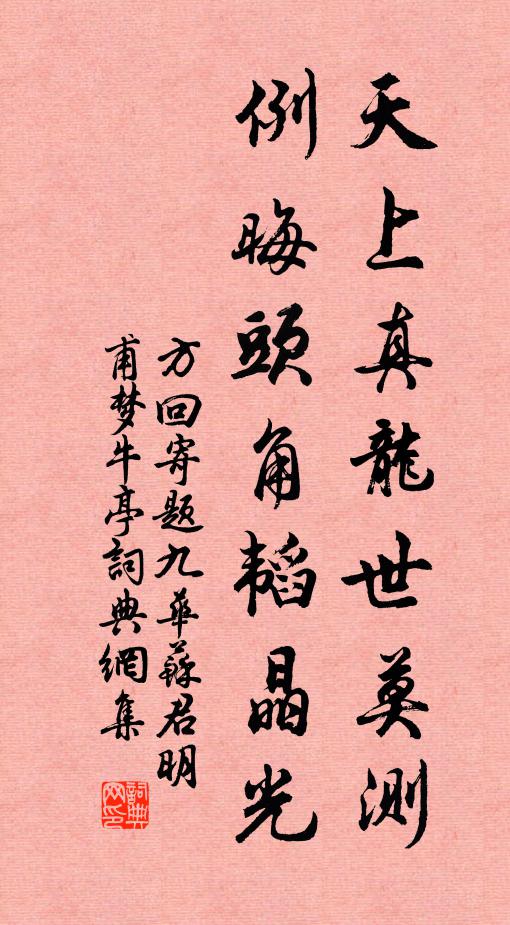 天上真龍世莫測
例晦頭角韬晶光
方回寄題九華蘇君明
甫梦牛亭詞典網集
詞典网印